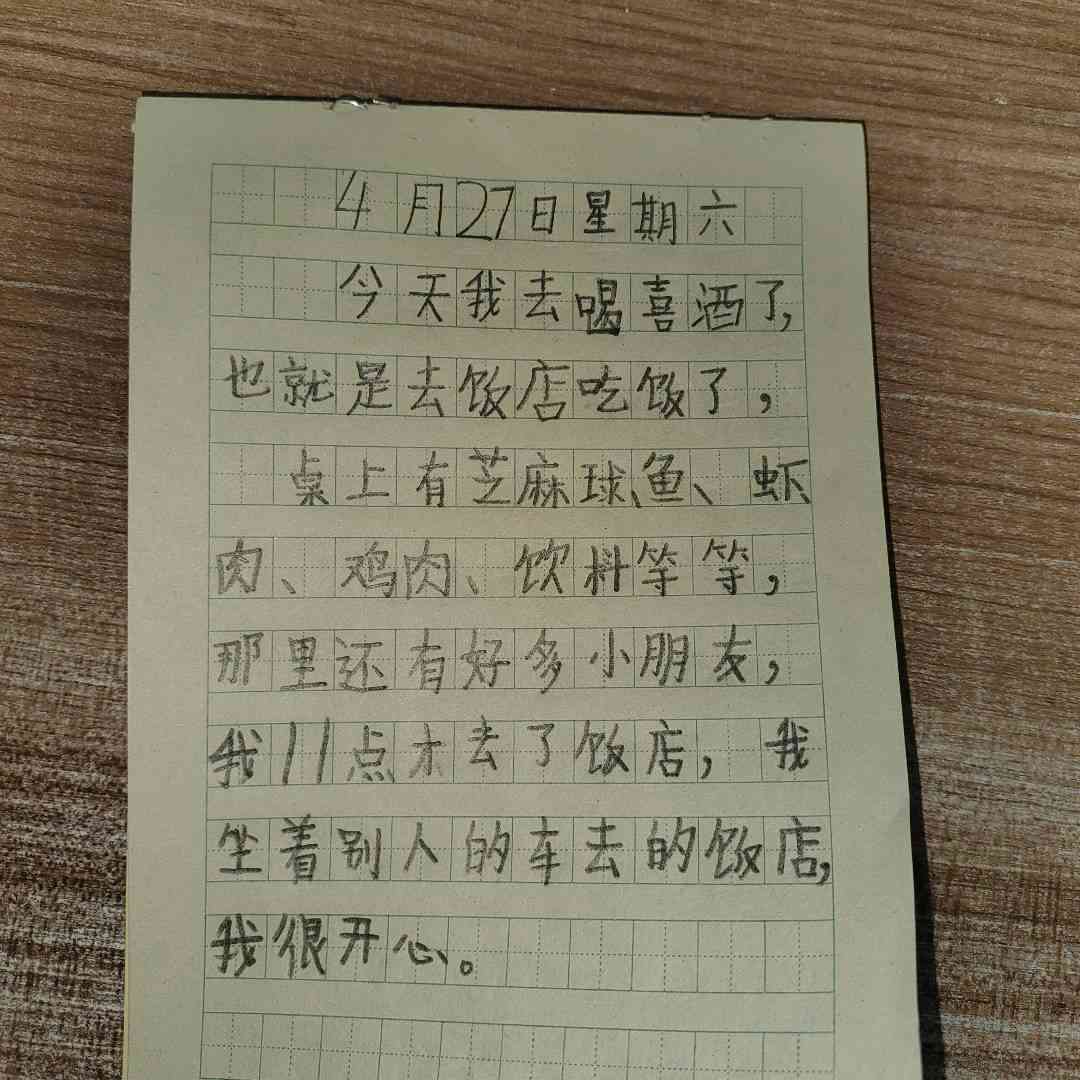 4月27日星期六
今天我去喝喜酒了,
也就是去饭店吃饭了，
桌上有芝麻球、鱼、虾
肉、鸡肉、饮料等等，
那里还有好多小朋友，
我11点未去了饭店，我
坐着别人的车去的饭店,
我很开心。